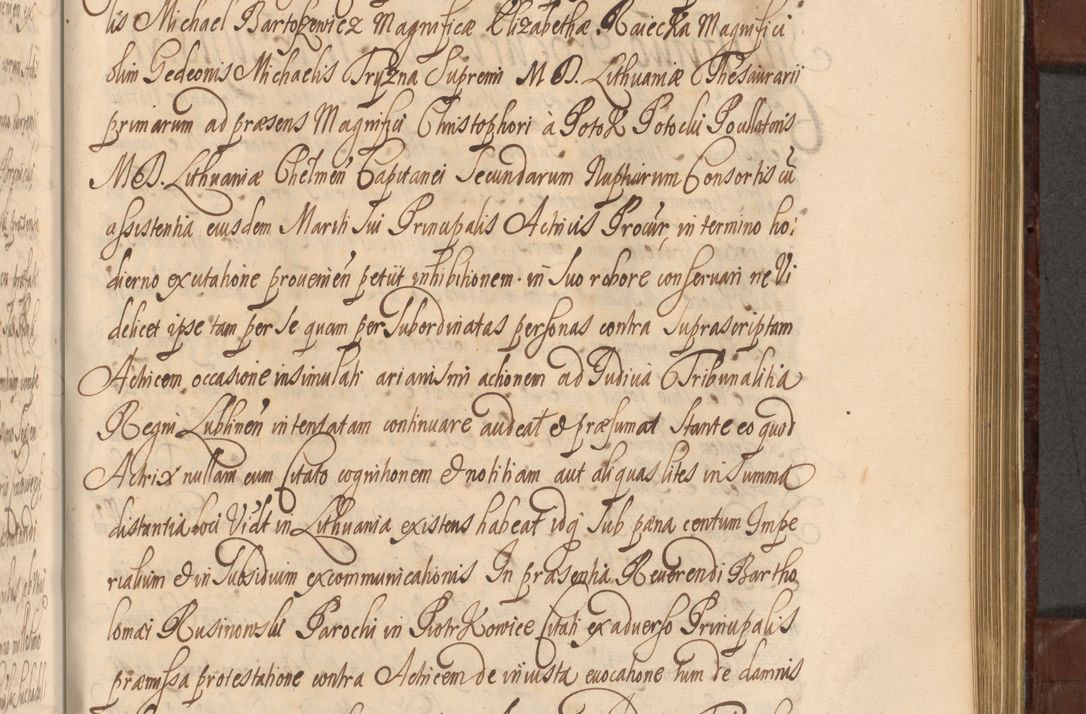 lis Michael Bartoszewicz Magnificæ Elizabethæ Raiecka Magnifici
olim Gedeonis Michaelis Tryzna Supremi M D. Lithuaniæ Thesaurarii
primarum ad præsens Magnifici Christophori à Potok Potocki Pocillatoris
M D. Lithuaniæ Chelmen Capitanei Secundarum Nuptiarum Consortis cū
assistentia eiusdem Mariti sui Principalis Actricis Procur in termino ho:
dierno ex citatione provenien petiit inhibitionem in suo robore conservari ne Vi
delicet ipse tam per se quam per Subordinatas personas contra Suprascriptam
Actricem occasione insimulati arianismi actionem ad Iudicia Tribunalitia
Regni Lublinen intentatam continuare audeat & præsumat Stante eo quod
Actrix nullam cum Citato cognitionem & notitiam aut aliquas lites in Summa
distantia loci Vidt in Lithuania existens habeat idq Sub pæna centum Impe
rialium & in Subsidium excommunicationis In præsentia Reverendi Bartho
lomæi Rusinowski Parochi in Piotrkowice Citati ex adverso Principalis
præmissa protestatione contra Actricem de iniusta evocatione tum de damnis